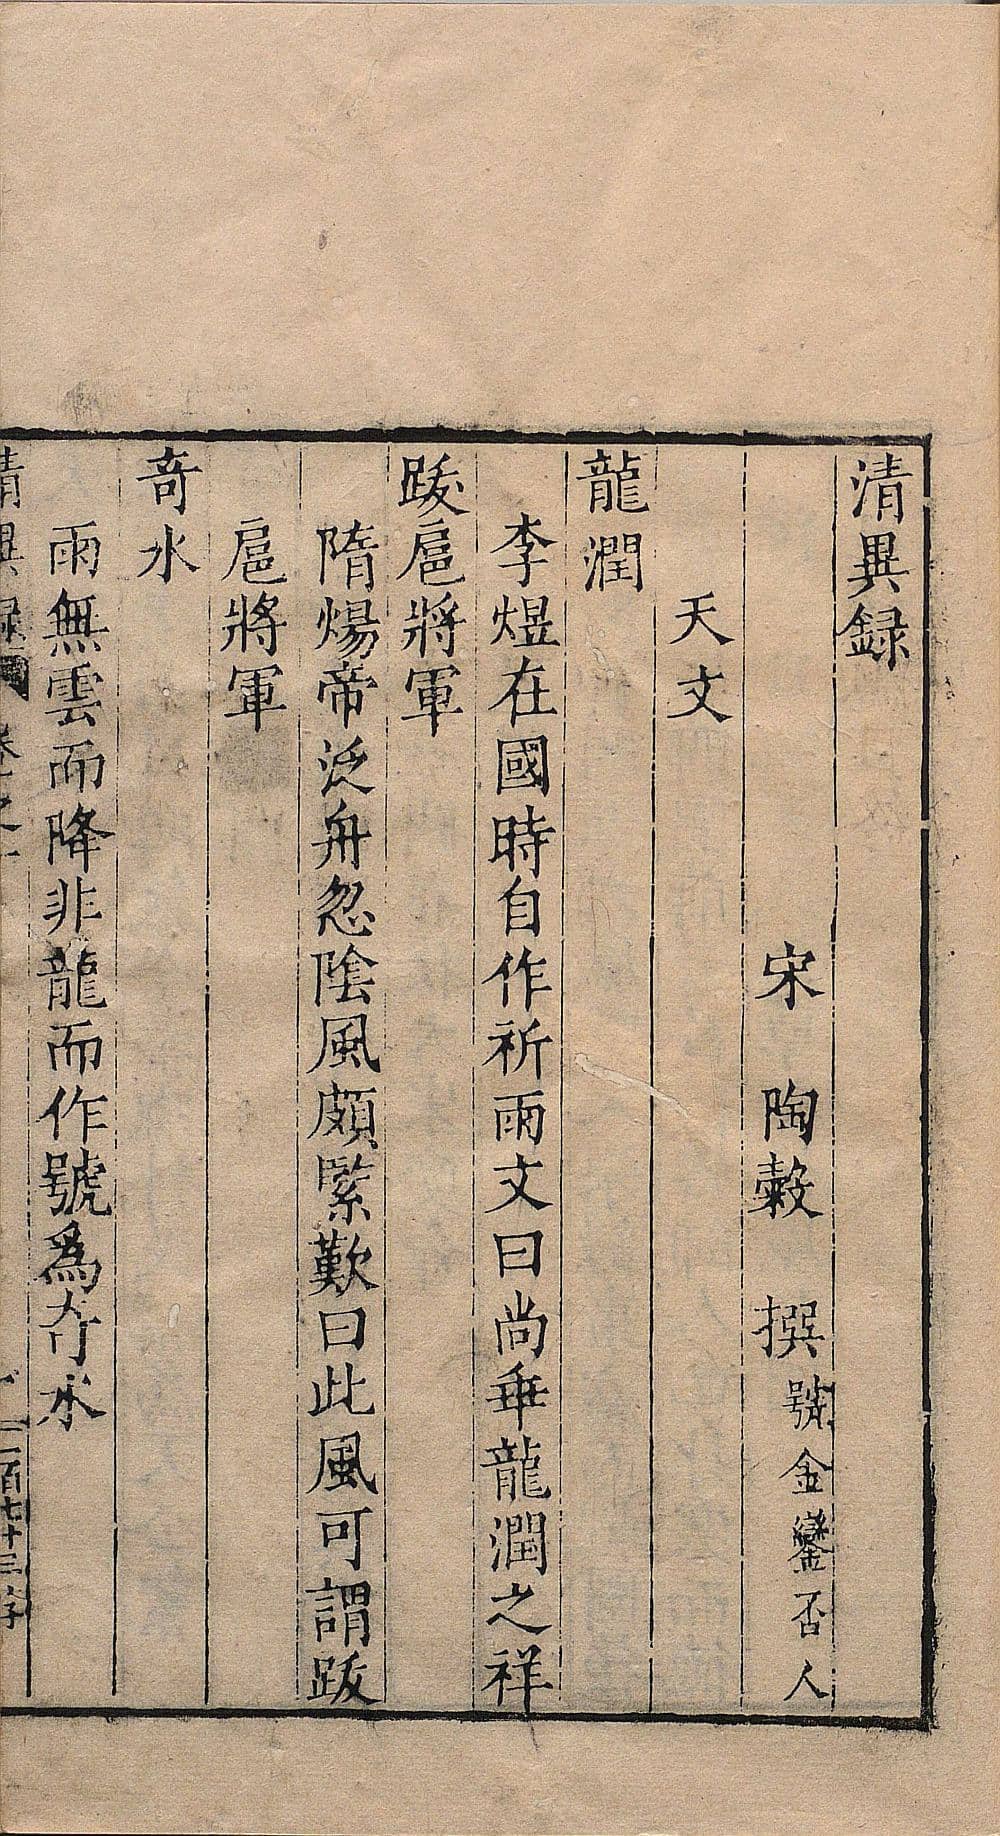 清異録
宋　陶穀　撰號金鑾否人
天文
龍潤
李煜在國時自作祈雨文曰尚垂龍潤之祥
跋扈將軍
隋煬帝泛舟忽陰風頗緊歎曰此風可謂跋
扈將軍
奇水
雨無雲而降非龍而作號爲奇水
清異録　卷之一　二百七十三字